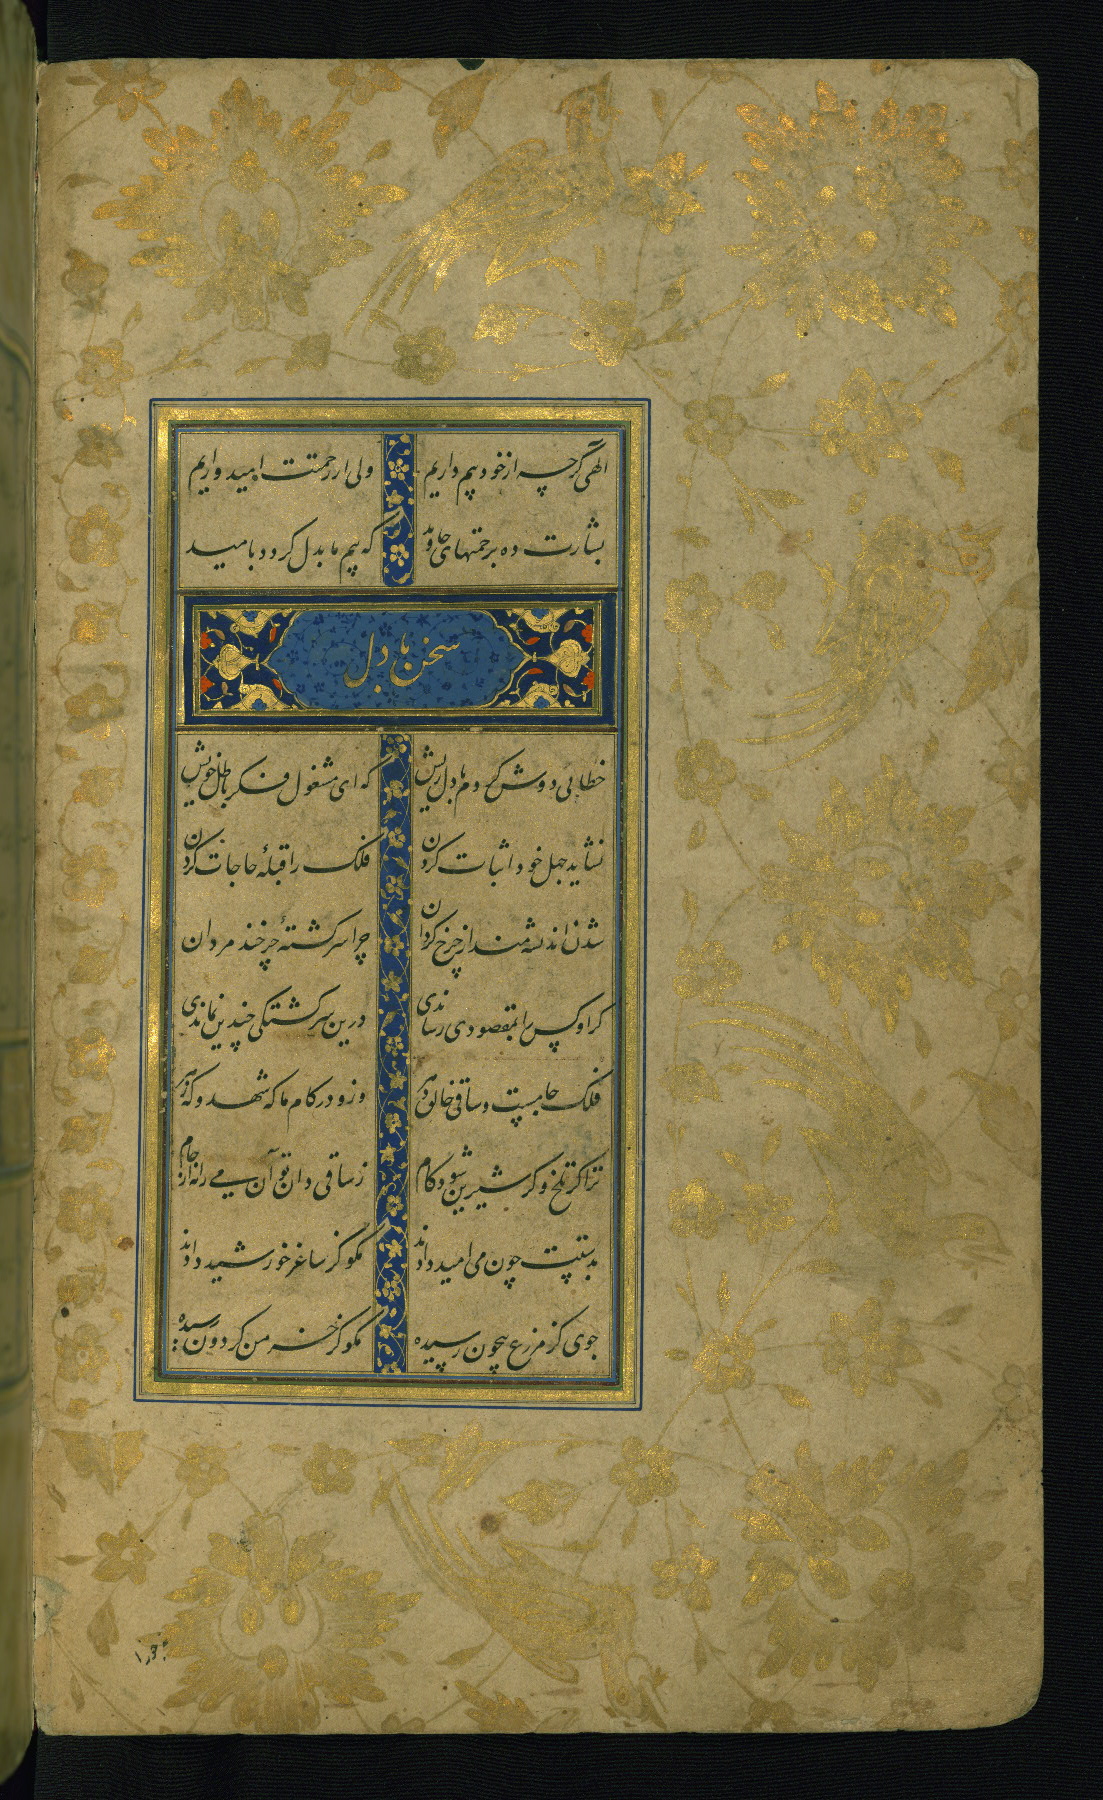 الهی گرچه از خود بیم داریم ولی از رحمتت امیدواریم
بشارت ده برحمتهای جاوید که بیم ما بدل گردد بامید
سخن با دل
خطابی دوش کردم با دل ریش که ای مشغول فکر باطل خویش
نشاید جهل خود اثبات کردن فلک را قبلهٔ حاجات کردن
شدن اندیشه‌مند از چرخ گردان چرا سرگشتهٔ چرخند مردان
گر او کس را بمقصودی رساندی درین سرگشتگی چندین نماندی
فلک جامست و ساقی خالق دهر وزو در کام ما که شهد و که زهر
ترا گر تلخ و گر شیرین شود کام ز ساقی دان تو آن می را نه از جام
بدستت چون می امید دادند مگو کز ساغر خورشید دادند
جوی کز مزرع بیچون رسیده مگو کز خرمن گردون رسیده